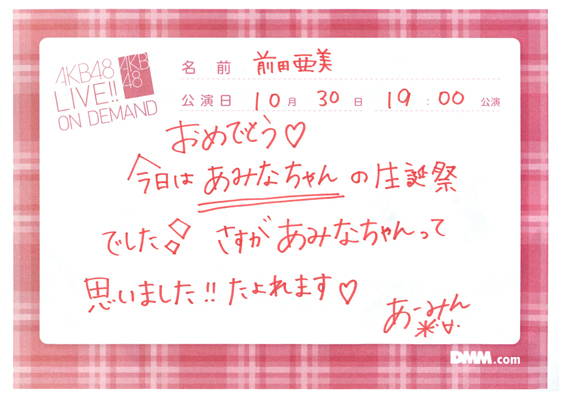 AKB48
LIVE!!
ON DEMAND
AKB
48
名前 前田亜美
公演日 10月30日 19:00公演
おめでとう♡
今日はあみなちゃんの生誕祭
でした!! さすがあみなちゃんって
思いました!! たよれます♡
あーみん
DMM.com